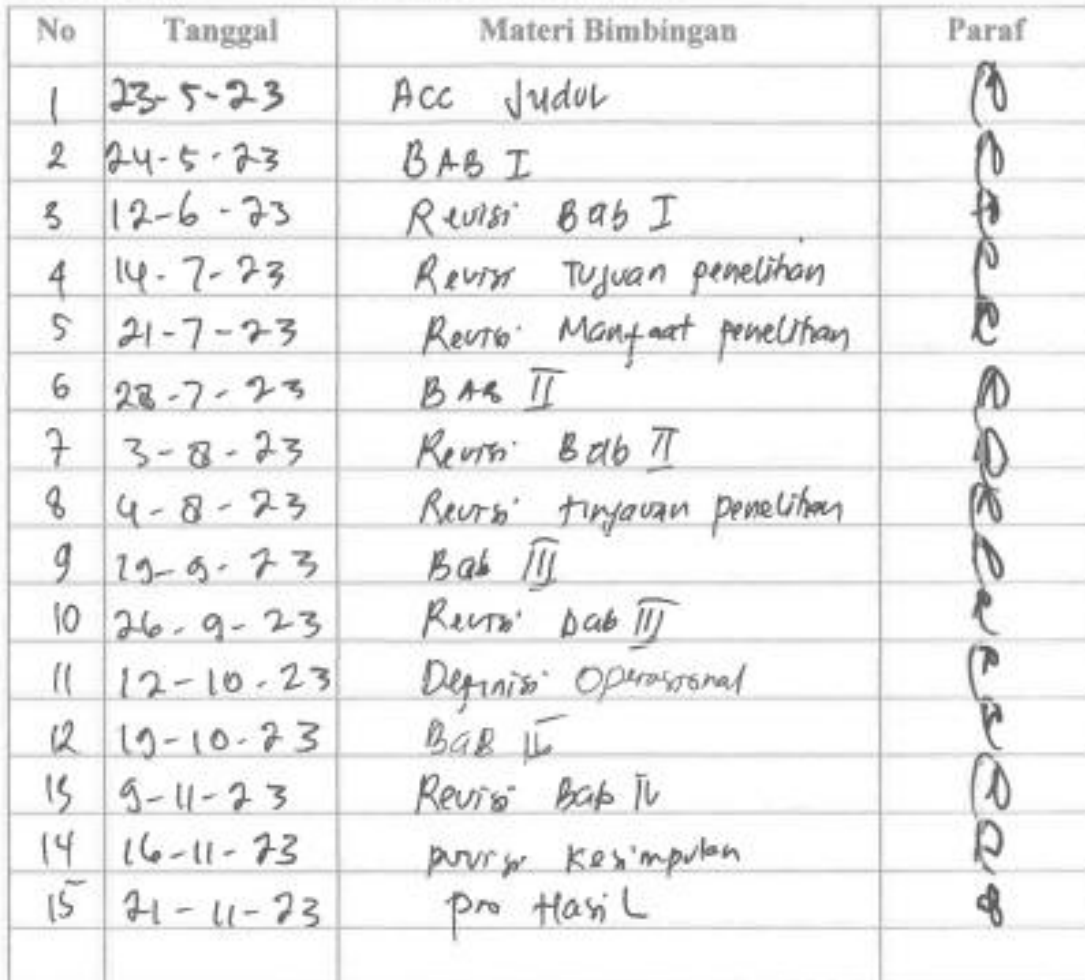 No Tanggal Materi Bimbingan Paraf
1 23-5-23 Acc Judul
2 24-5-23 BAB I
3 12-6-23 Revisi Bab I
4 14-7-23 Revisi Tujuan penelitian
5 21-7-23 Revisi Manfaat penelitian
6 28-7-23 BAB II
7 3-8-23 Revisi Bab II
8 4-8-23 Revisi tinjauan penelitian
9 19-9-23 Bab III
10 26-9-23 Revisi bab III
11 12-10-23 Definisi Operasional
12 19-10-23 BAB IV
13 9-11-23 Revisi Bab IV
14 16-11-23 kesimpulan
15 21-11-23 pro Hasil